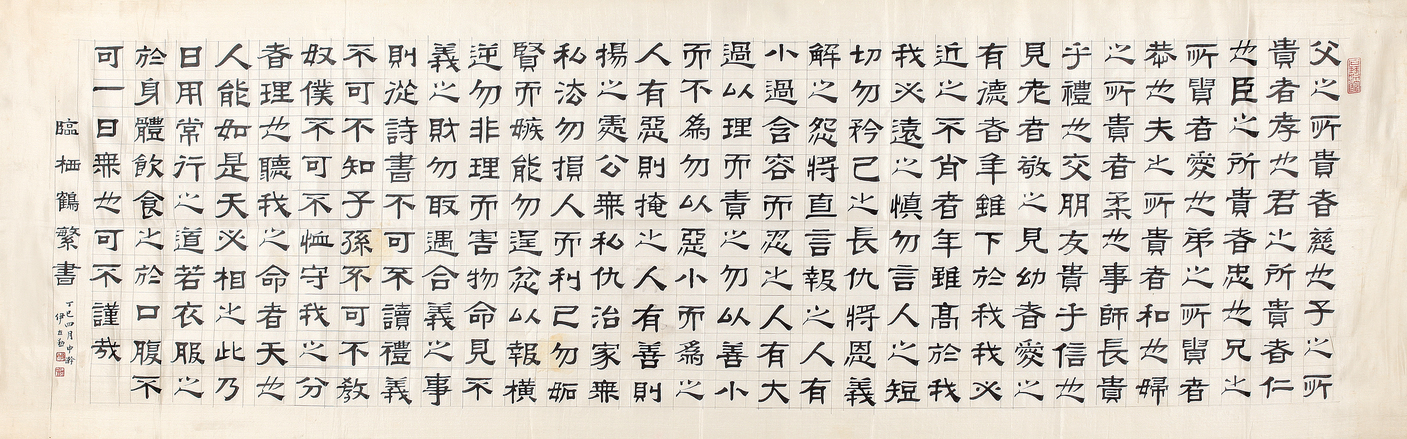 父之所貴者慈也子之所
貴者孝也君之所貴者仁
也臣之所貴者忠也兄之
所貴者愛也弟之所貴者
恭也夫之所貴者和也婦
之所貴者柔也事師長貴
乎禮也交朋友貴乎信也
見老者敬之見幼者愛之
有德者年雖下於我我必
近之不肖者年雖高於我
我必遠之慎勿言人之短
切勿矜己之長仇將恩義
解之怨將直言報之人有
小過含容而忍之人有大
過以理而責之勿以善小
而不為勿以惡小而為之
人有惡則掩之人有善則
揚之處公無私仇治家無
私法勿損人而利己勿妬
賢而嫉能勿逞忿以報橫
逆勿非理而害物命見不
義之財勿取遇合義之事
則從詩書不可不讀禮義
不可不知子孫不可不教
奴僕不可不恤守我之分
者理也聽我之命者天也
人能如是天必相之此乃
日用常行之道若衣服之
於身體飲食之於口腹不
可一日無也可不謹哉
臨栖鶴繁書
丁巳四月中幹